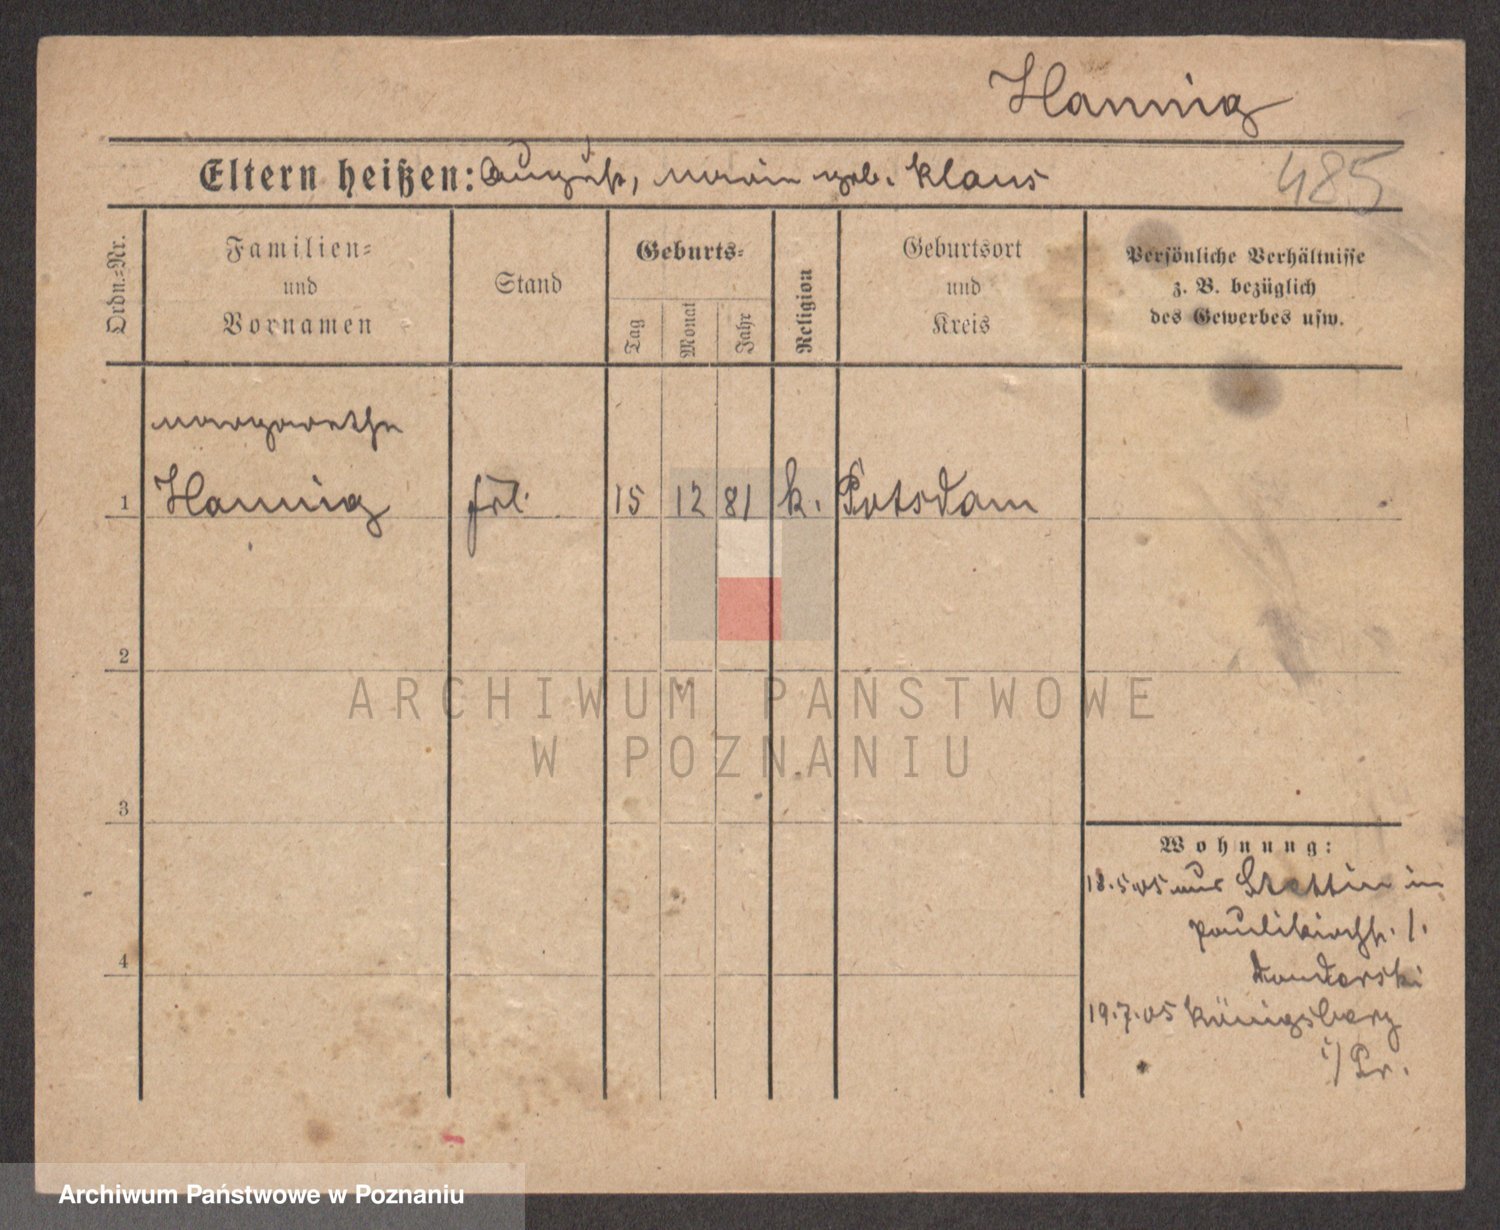 Hannig
485
Eltern heißen: August, Marie geb. Klaus
Ordn.=Nr.
Familien=
und
Vornamen
Stand
Geburts=
Tag
Monat
Jahr
Religion
Geburtsort
und
Kreis
Persönliche Verhältnisse
z. B. bezüglich
des Gewerbes usw.
Margarethe
1 Hannig frl. 15 12 81 k. Potsdam
2
3
4
Wohnung:
18.5.05 aus Stettin in
Paulikirchstr. 1.
19.7.05 Königsberg
i/Pr.
ARCHIWUM PAŃSTWOWE
W POZNANIU
Archiwum Państwowe w Poznaniu